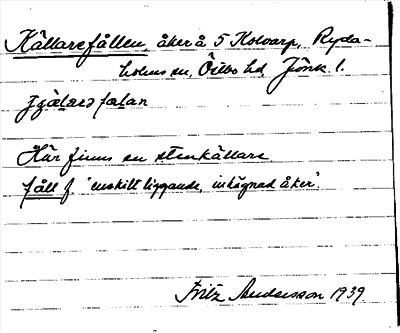 Källarefållen, åker å 5 Kolvarp, Ryda-
holms sn, Östbo hd, Jönk. l.
Här finns en stenkällare
fåll f. "enskilt liggande, inhägnad åker".
Fritz Andersson 1939